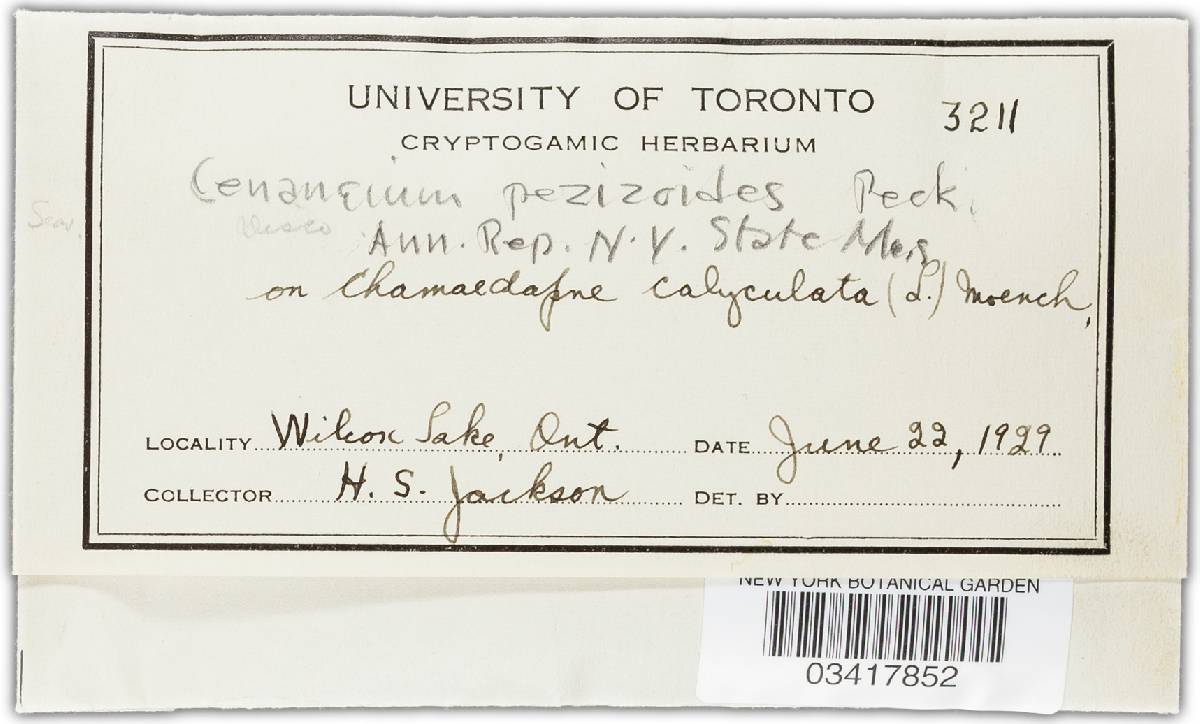 UNIVERSITY OF TORONTO
3211
CRYPTOGAMIC HERBARIUM
Cenangium pezizoides Peck.
Disco
Ann. Rep. N.Y. State Mus
on Chamaedafne calyculata (L.) Moench,
LOCALITY Wilcox Lake, Ont. DATE June 22, 1929
COLLECTOR H. S. Jackson DET. BY
NEW YORK BOTANICAL GARDEN
03417852